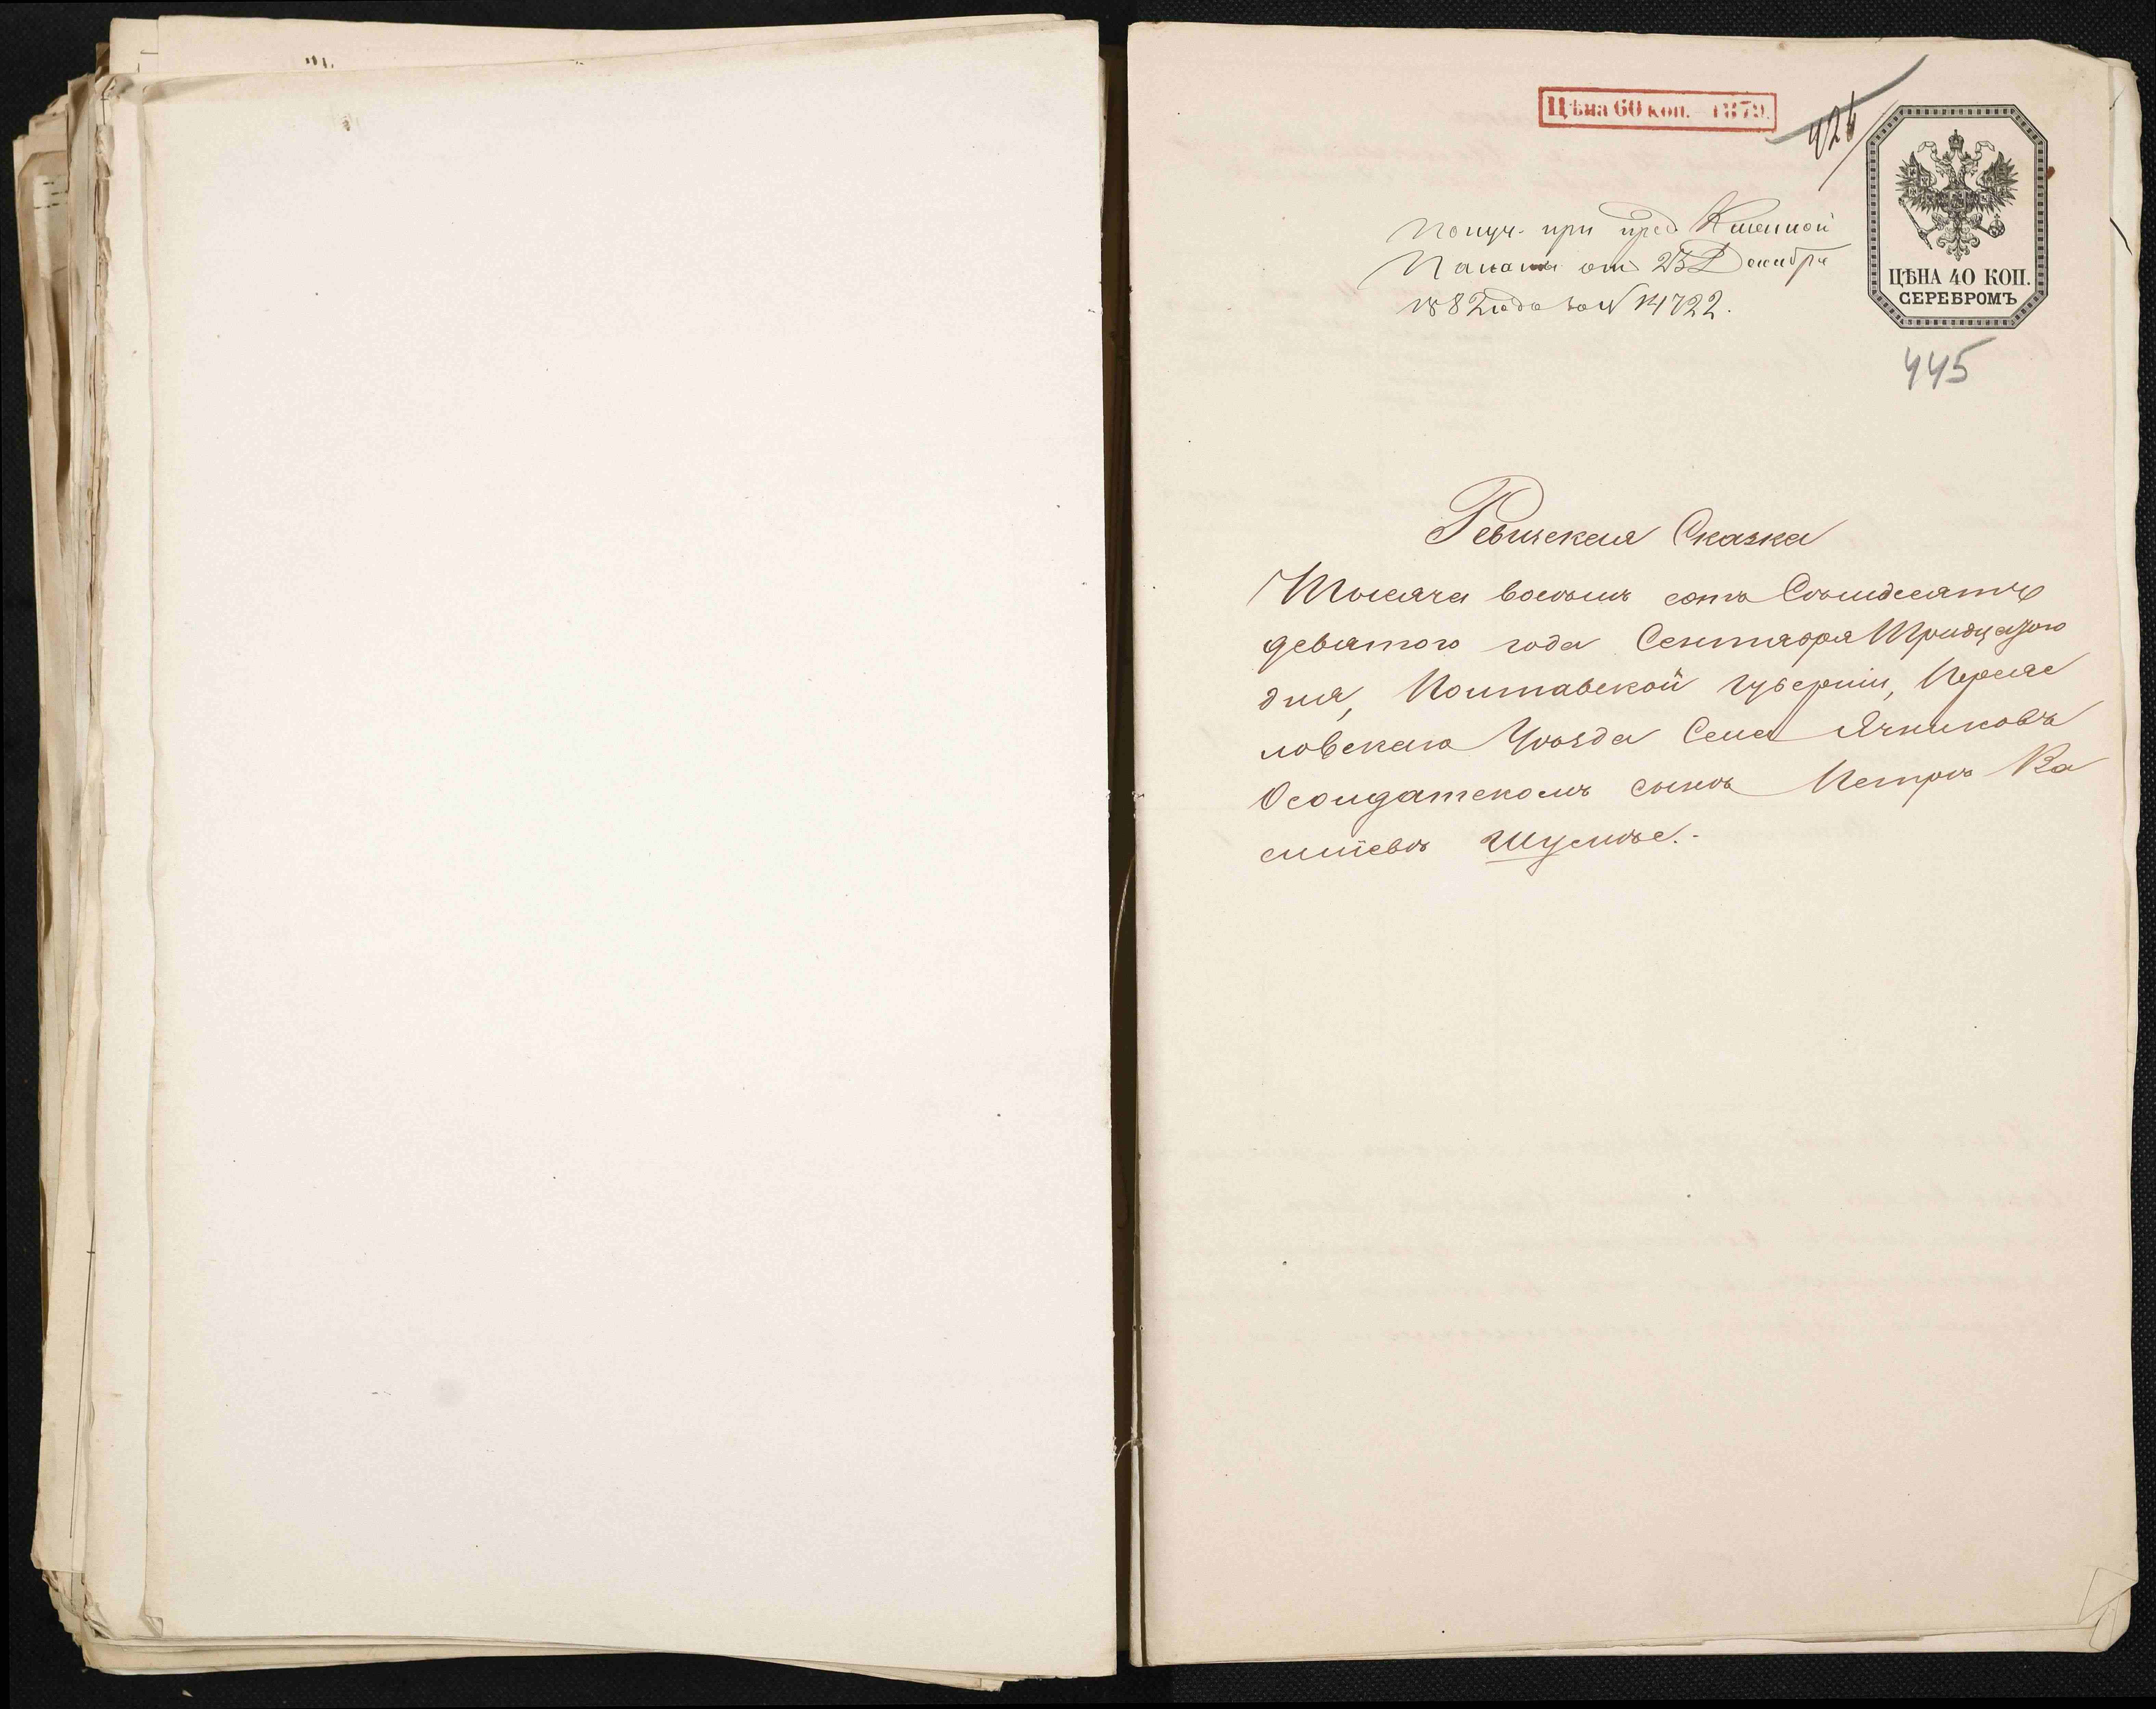 Цѣна 60 коп. 1879.
426
ЦѢНА 40 КОП.
СЕРЕБРОМЪ
Получ. при пред. Казенной
Палаты отъ 23 Декабря
1882 года за № 14722.
445
Ревизская Сказка
Тысяча восемь сотъ Семидесять
девятого года Сентября Тридцатого
дня, Полтавской губерніи, Переяс
ловскаго Уѣзда Села Ячниковъ
О солдатскомъ сынѣ Петрѣ Ва
силіевѣ